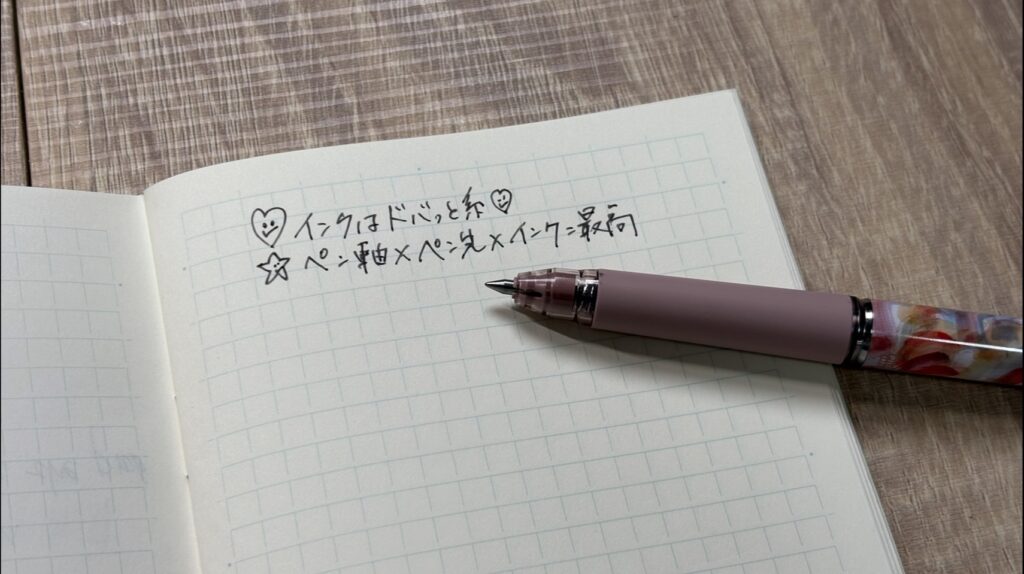 ♡インクはドバっと系♡
☆ペン軸×ペン先×インク=最高